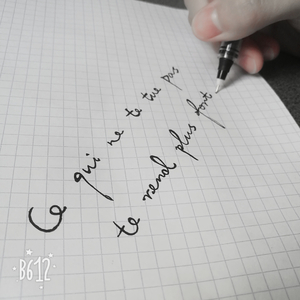 Ce qui ne te tue pas
te rend plus fort
B612